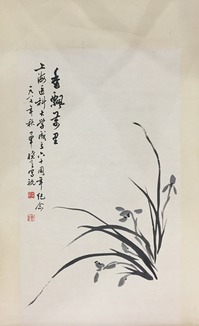 香飘万里
上海医科大学成立六十周年纪念
一九八七年秋